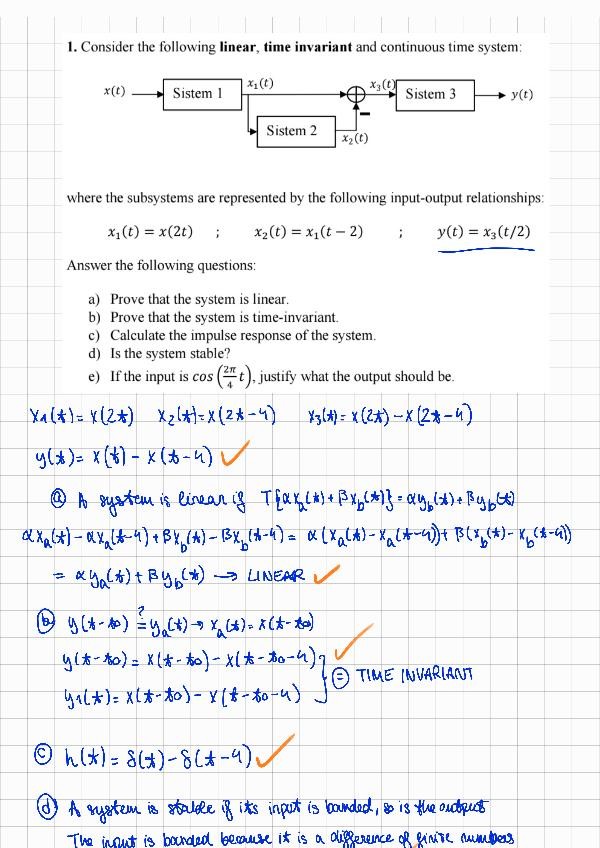 1. Consider the following linear, time invariant and continuous time system:
x(t) Sistem 1 x₁(t) x₃(t) Sistem 3 y(t)
Sistem 2 x₂(t)
where the subsystems are represented by the following input-output relationships:
x₁(t) = x(2t) ; x₂(t) = x₁(t − 2) ; y(t) = x₃(t/2)
Answer the following questions:
a) Prove that the system is linear.
b) Prove that the system is time-invariant.
c) Calculate the impulse response of the system.
d) Is the system stable?
e) If the input is cos(2π/4 t), justify what the output should be.
x₁(t) = x(2t) x₂(t) = x(2t-4) x₃(t) = x(2t) - x(2t-4)
y(t) = x(t) - x(t-4)
a) A system is linear if T{αxₐ(t) + βx_b(t)} = αy_b(t) + βy_b(t)
αxₐ(t) - αxₐ(t-4) + βx_b(t) - βx_b(t-4) = α(xₐ(t) - xₐ(t-4)) + β(x_b(t) - x_b(t-4))
= αyₐ(t) + βy_b(t) → LINEAR
b) y(t-t0) ?= yₐ(t) → xₐ(t) = x(t-t0)
y(t-t0) = x(t-t0) - x(t-t0-4)
} = TIME INVARIANT
y₁(t) = x(t-t0) - x(t-t0-4)
c) h(t) = δ(t) - δ(t-4)
d) A system is stable if its input is bounded, so is the output
The input is bounded because it is a difference of finite numbers